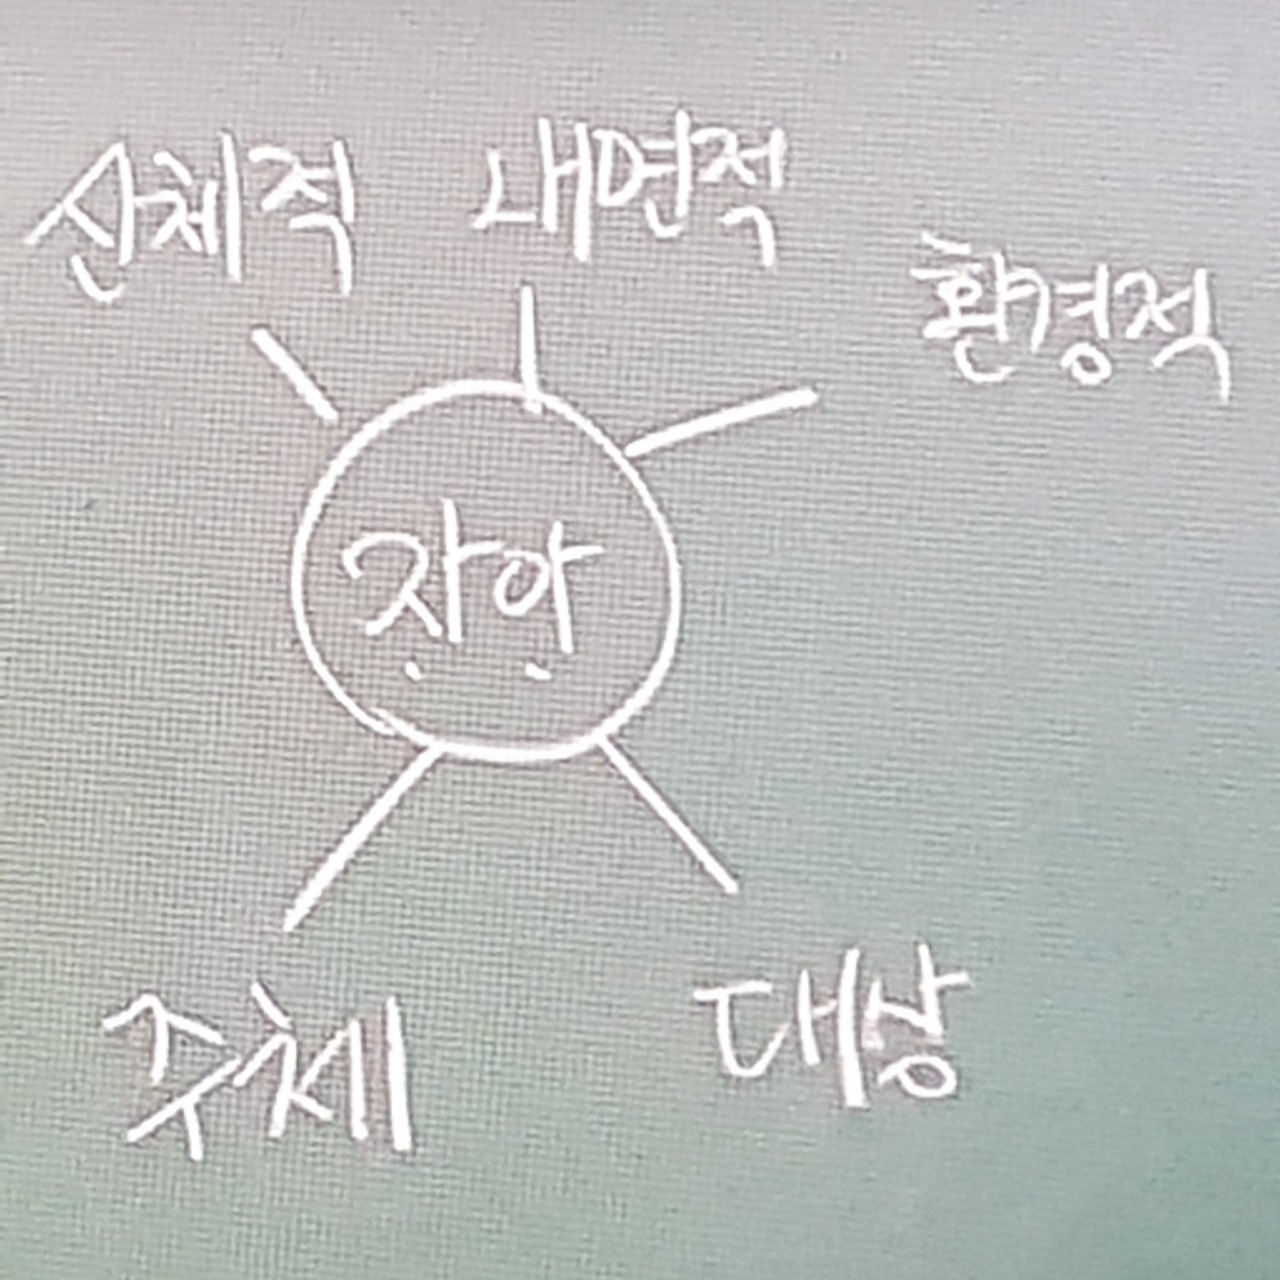 신체적 내면적
환경적
자아
주체 대상